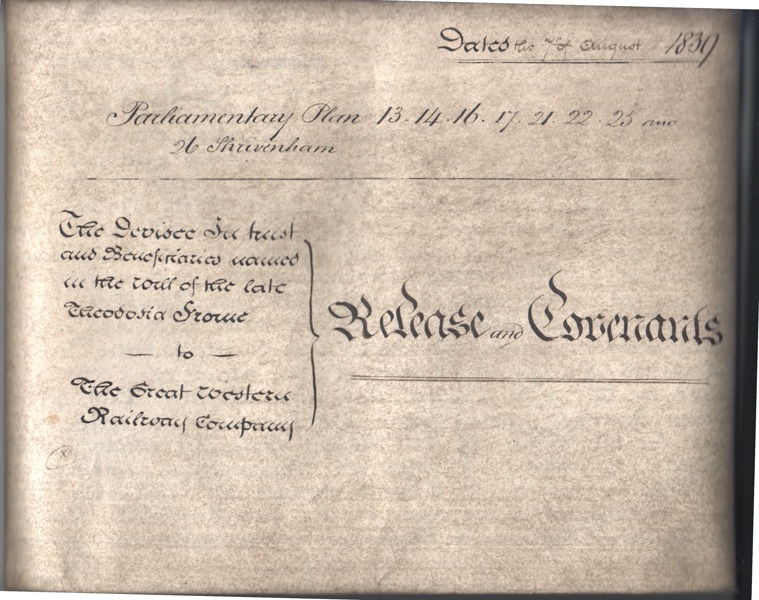 Dated the 7th of August 1839
Parliamentary Plan 13. 14. 16. 17. 21. 22. 25 and
26 Shrivenham
The Devisee In trust
and Beneficiaries named
in the will of the late
Theodosia Frome
— to —
The Great Western
Railway Company
Release and Covenants